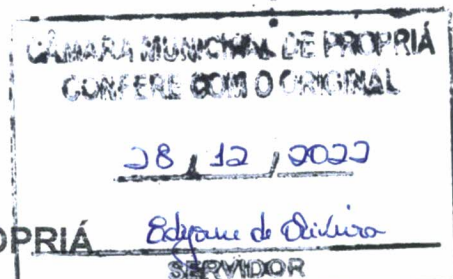 CÂMARA MUNICIPAL DE PROPRIÁ
CONFERE COM O ORIGINAL
28 / 12 / 2022
OPRIÁ
de Oliveira
SERVIDOR